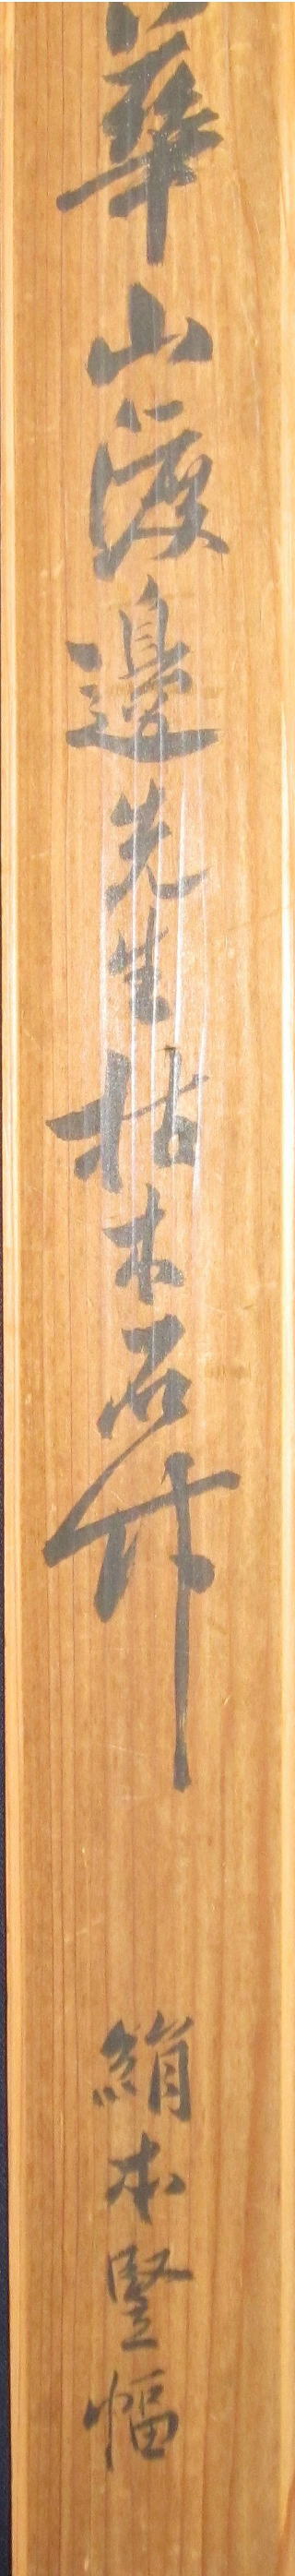 華山渡邊先生枯木石竹 絹本豎幅